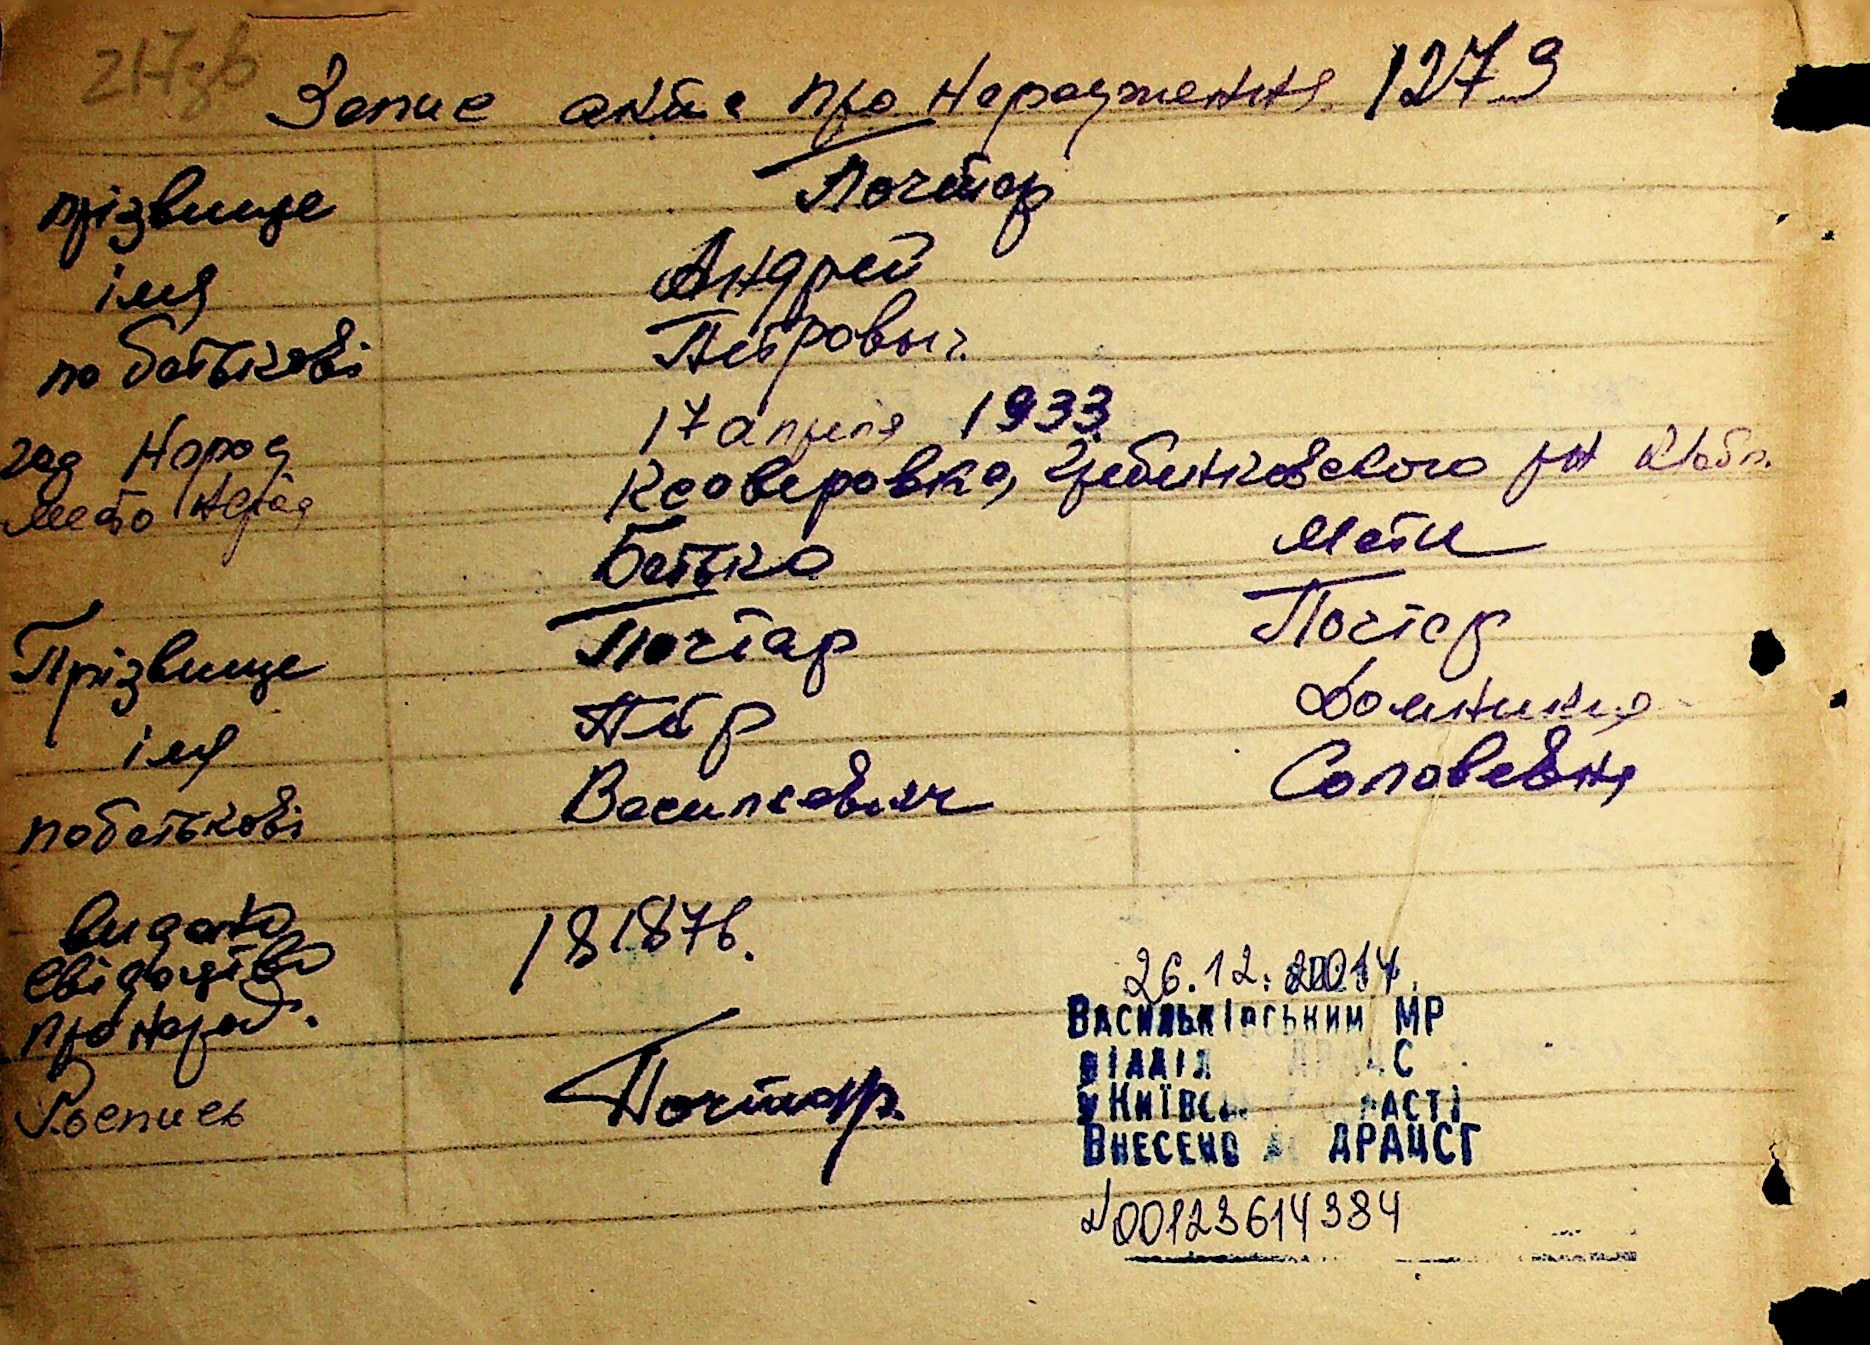 217зв
Запис акта про Народження 1279
прізвище Почтар
імя Андрей
по батькові Петрович
год Народ 17 апреля 1933
место Народ Ксаверовка, Гребенковского р-н К/обл.
Батько Мати
Прізвище Почтар Почтар
імя Пётр Домникия
по батькові Васильевич Соловевна
видано 181876.
свідоцтво
про народ.
Роспись Почтар.
26.12.2014.
Васильківським МР
відділ ДРАЦС
у Київсь ласті
Внесено до ДРАЦСГ
№00123614384